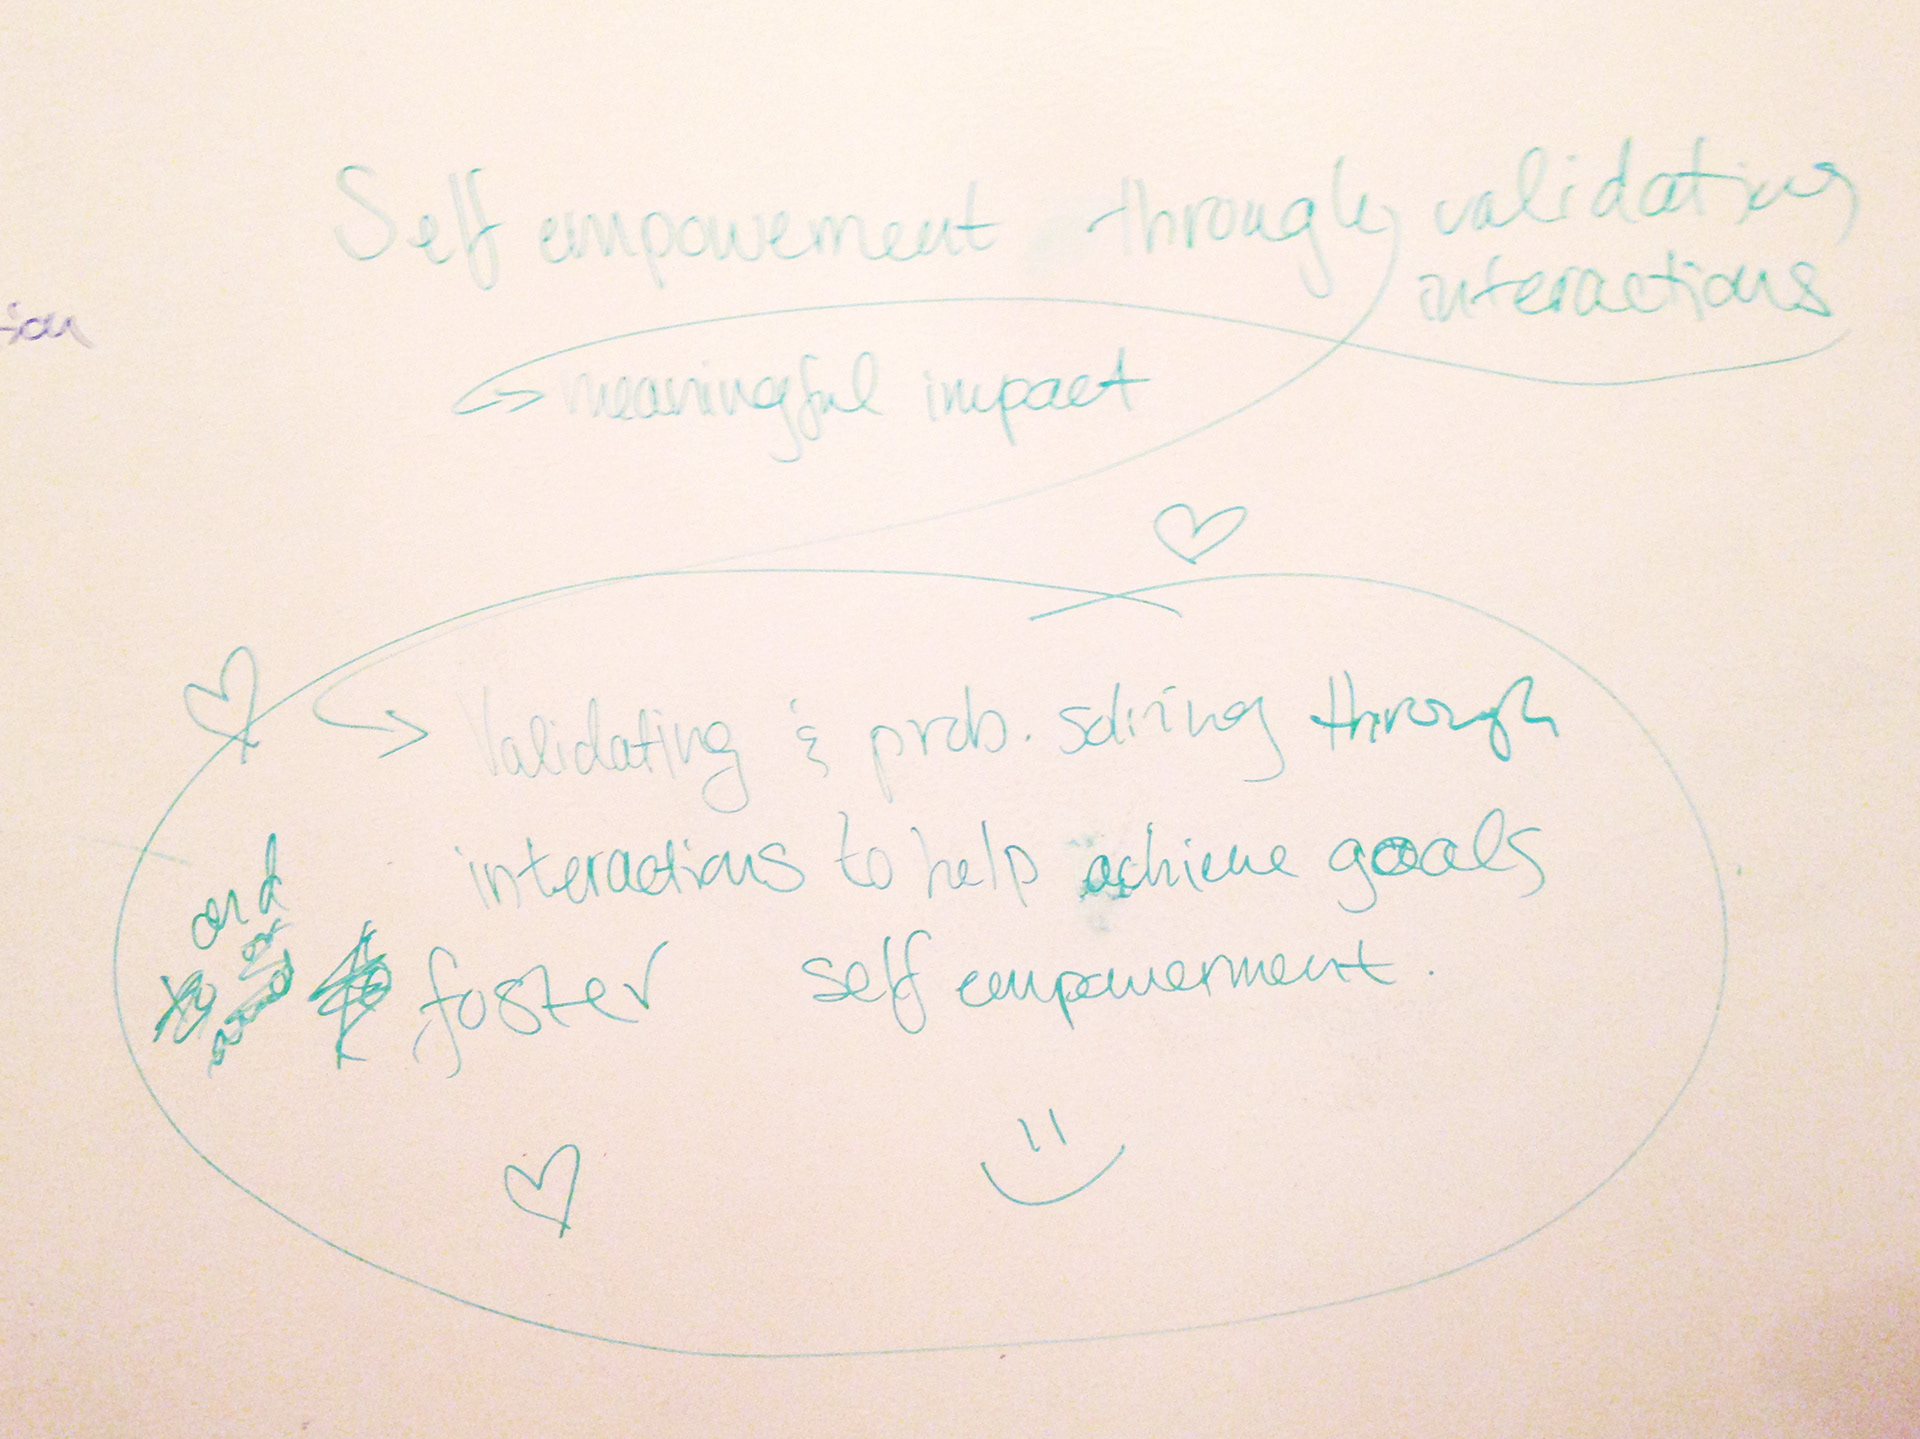 Self empowement through validating
interactions
tion
meaningful impact
Validating & prob. solving through
interactions to help achieve goals
and
foster self empowerment.